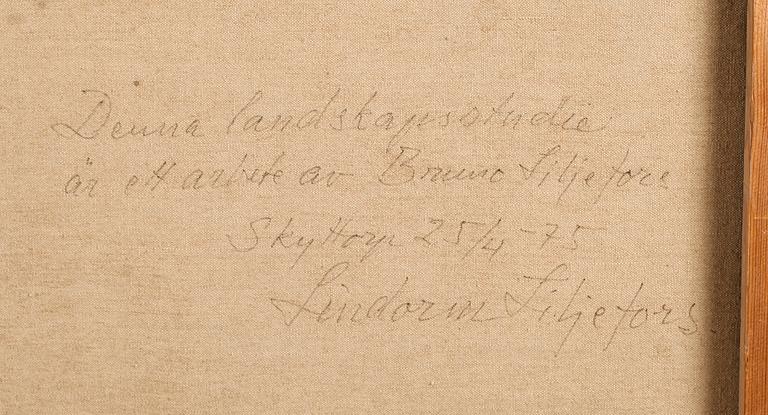 Denna landskapsstudie
är ett arbete av Bruno Liljefors
Skyttorp 25/4-75
Lindorm Liljefors.